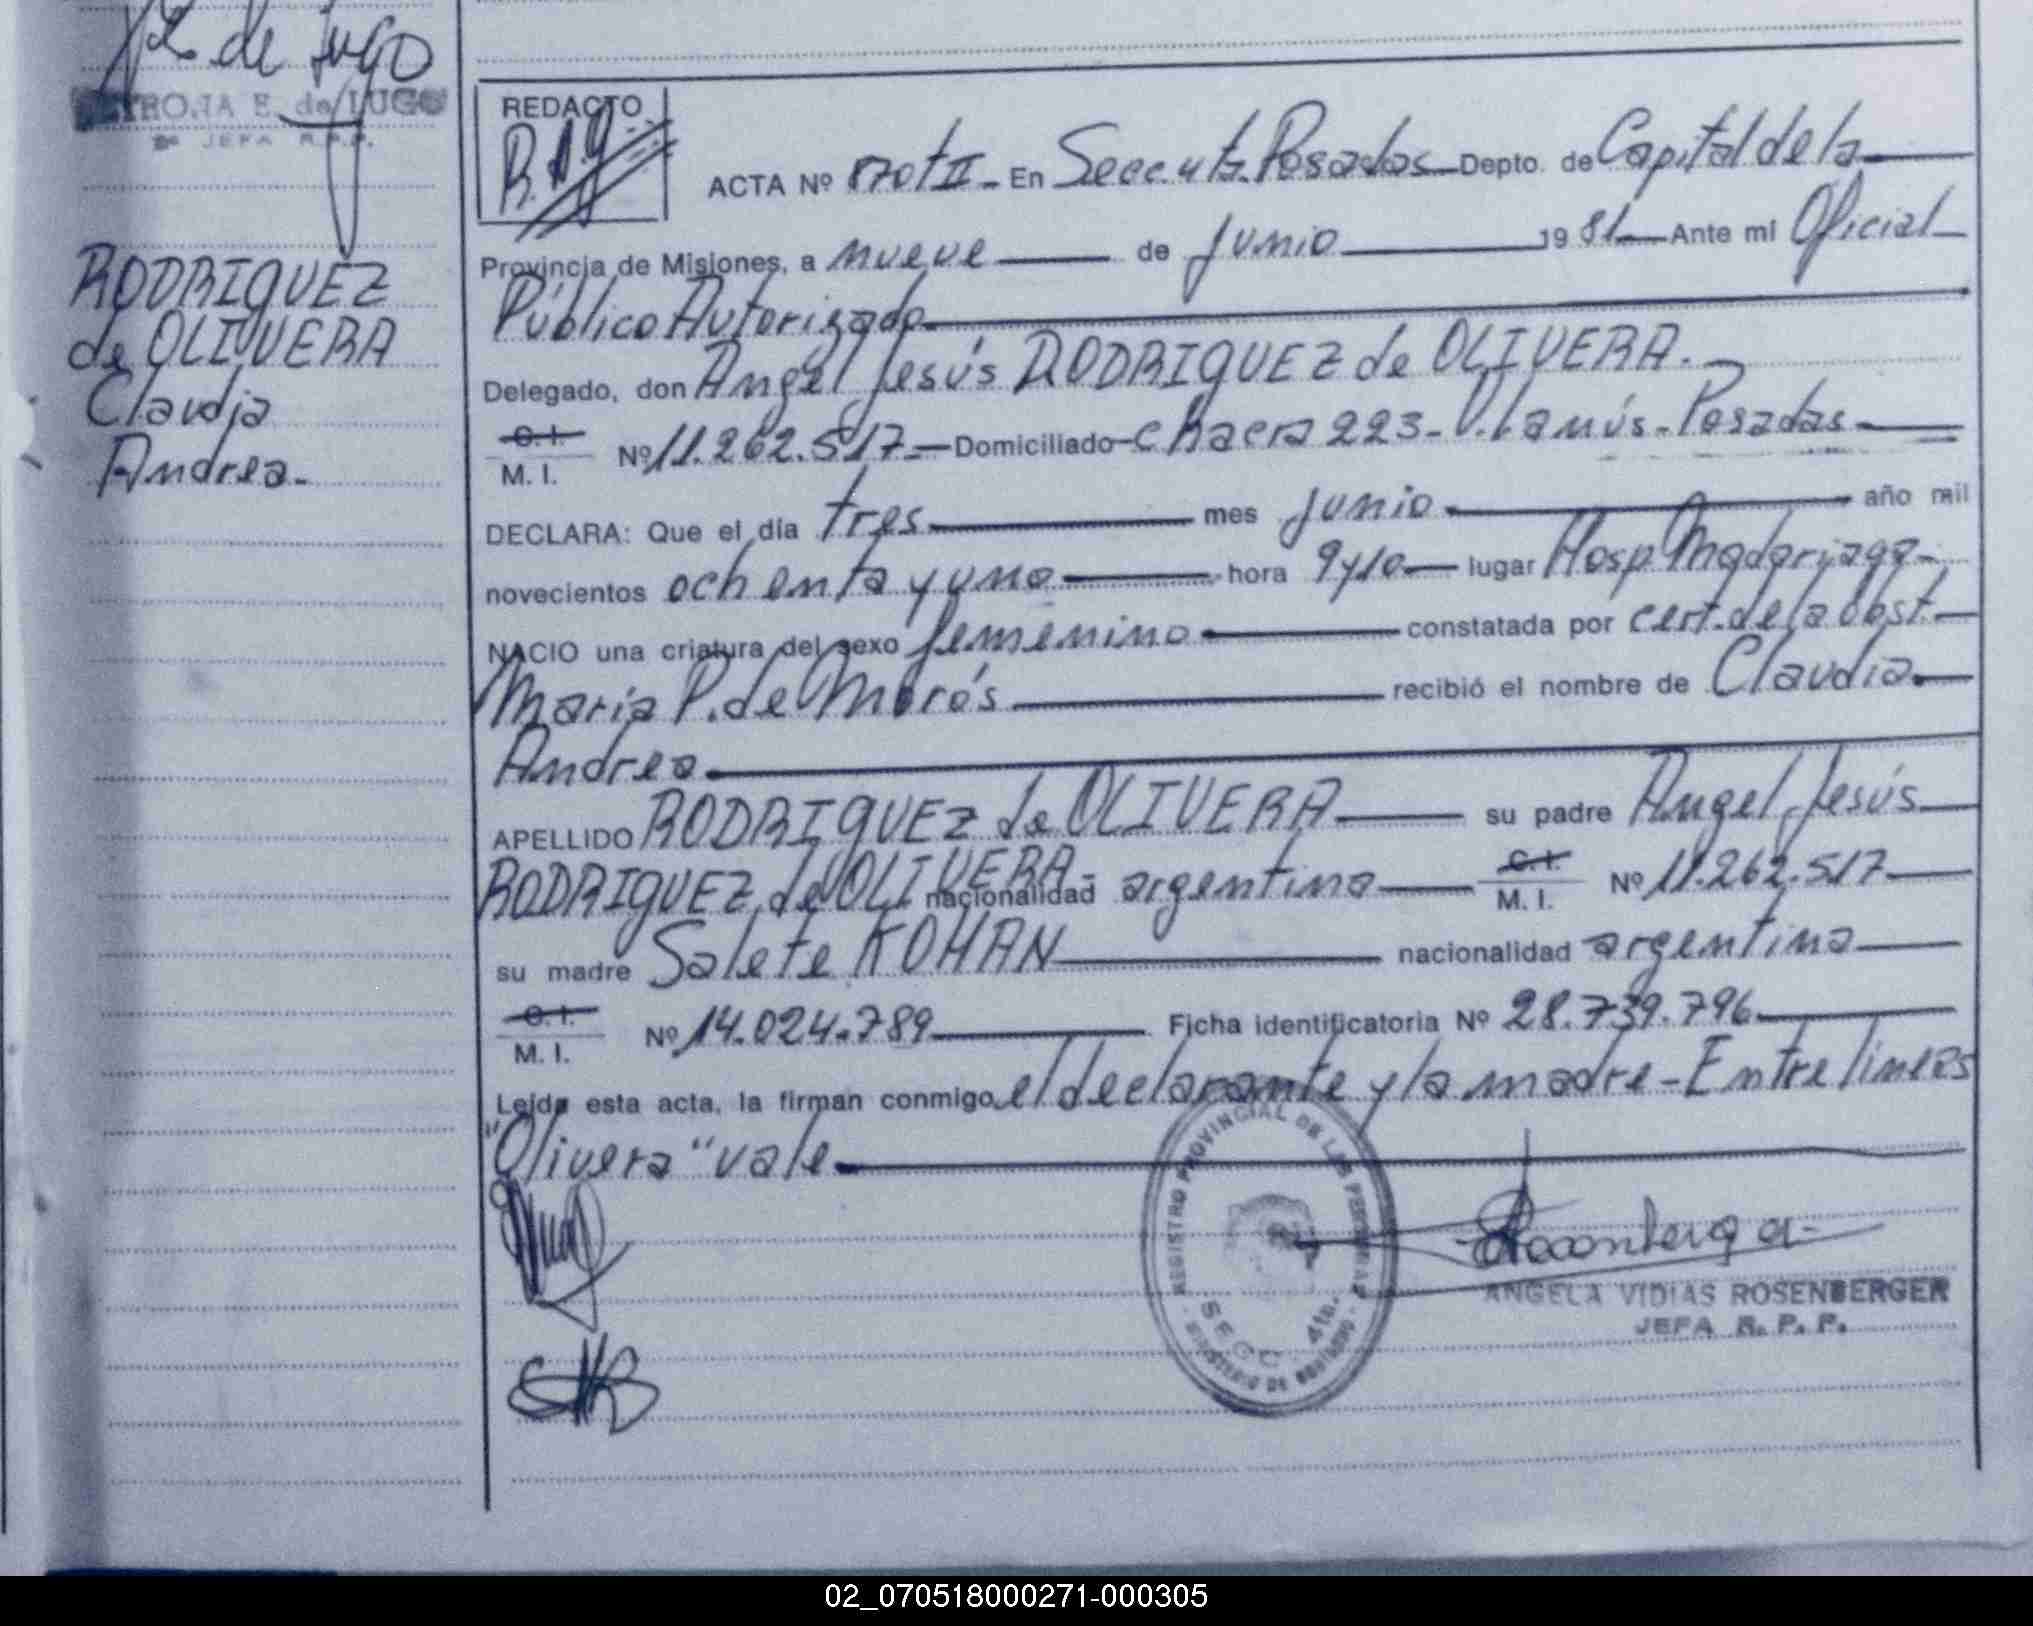 de Lugo
PETRONA E. de LUGO
JEFA R.P.P.
RODRIGUEZ
de OLIVERA
Claudia
Andrea.
REDACTO
ACTA Nº 170 tII - En Secc. 4ta. Posadas Depto. de Capital de la
Provincia de Misiones, a nueve de junio 1981 Ante mi Oficial
Público Autorizado
Delegado, don Angel Jesús RODRIGUEZ de OLIVERA.
C. I.
M. I. Nº 11.262.517 Domiciliado chacra 223 - V. Lanús - Posadas
DECLARA: Que el día tres mes junio año mil
novecientos ochenta y uno hora 9 y 10 lugar Hosp. Madariaga
NACIO una criatura del sexo femenino constatada por cert. de la obst.
María P. de Morós recibió el nombre de Claudia
Andrea
APELLIDO RODRIGUEZ de OLIVERA su padre Angel Jesús
RODRIGUEZ de OLIVERA - nacionalidad argentina C. I. M. I. Nº 11.262.517
su madre Salete KOHAN nacionalidad argentina
C. I.
M. I. Nº 14.024.789 Ficha identificatoria Nº 28.739.796
Leída esta acta, la firman conmigo el declarante y la madre - Entre lineas
"Olivera" vale
REGISTRO PROVINCIAL DE LAS PERSONAS
SECC. 4ta.
MINISTERIO DE GOBIERNO
ANGELA VIDIAS ROSENBERGER
JEFA R. P. P.
02_070518000271-000305